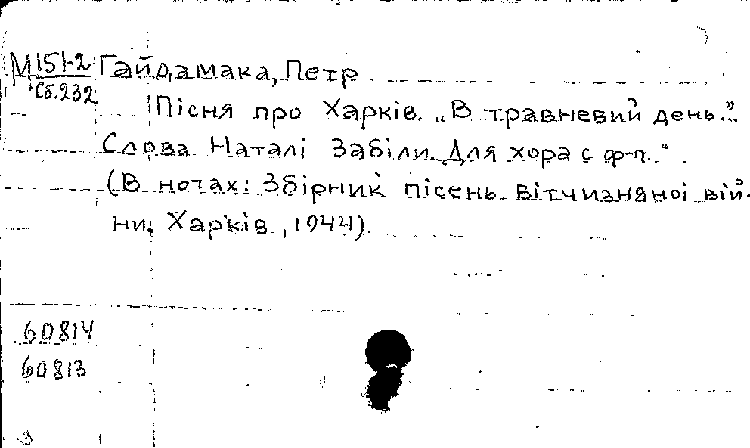 М 151-2 Гайдамака, Петр
Сб.232
Пісня про Харків. „В травневий день.."
Слова Наталі Забіли. Для хора с ф-п..".
(В нотах: Збірник пісень вітчизняної вій-
ни. Харків, 1944).
60814
60813